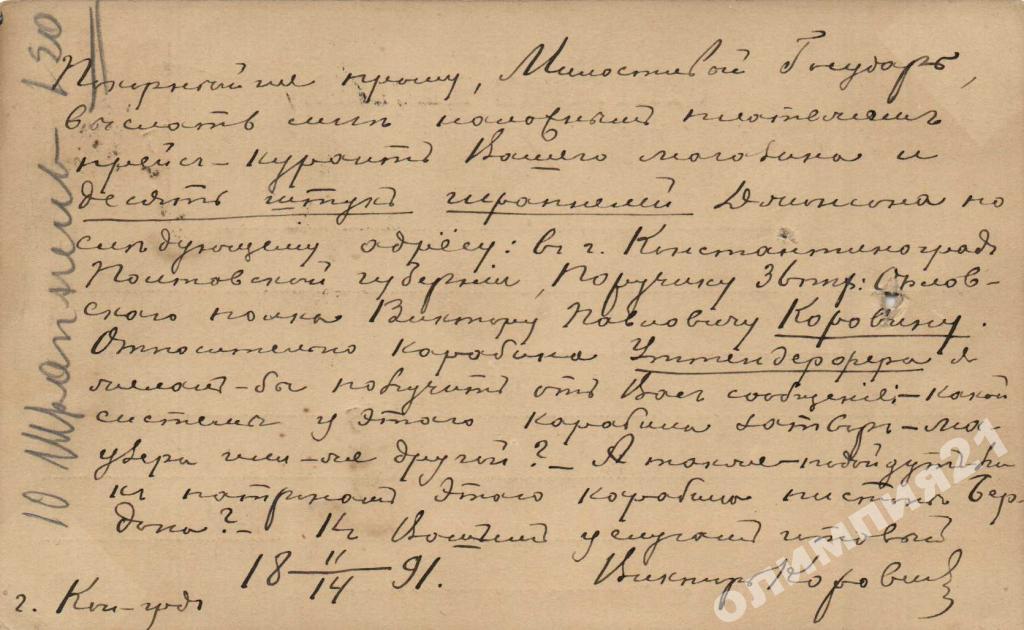 Покорнѣйше прошу, Милостивой Государь,
выслать мнѣ наложнымъ платежемъ
прейсъ-курантъ Вашего магазина и
десять штукъ шрапнелей Джонсона по
слѣдующему адресу: въ г. Константиноградъ
Полтавской губерніи, Поручику 36 пѣх: Орлов-
скаго полка Виктору Павловичу Коровину.
Относительно карабина Уттендерфера я
желалъ-бы получить отъ Васъ сообщеніе:-какой
системы у этого карабина затворъ-Ма-
узера или-же другой?- А также-подойдутъ-ли
къ патронамъ этого карабина пистоны Бер-
дана?- Къ Вашимъ услугамъ готовый
18 11/14 91. Викторъ Коровинъ
г. Кон-градъ
10 Шрапнель 1 50
олимпия21